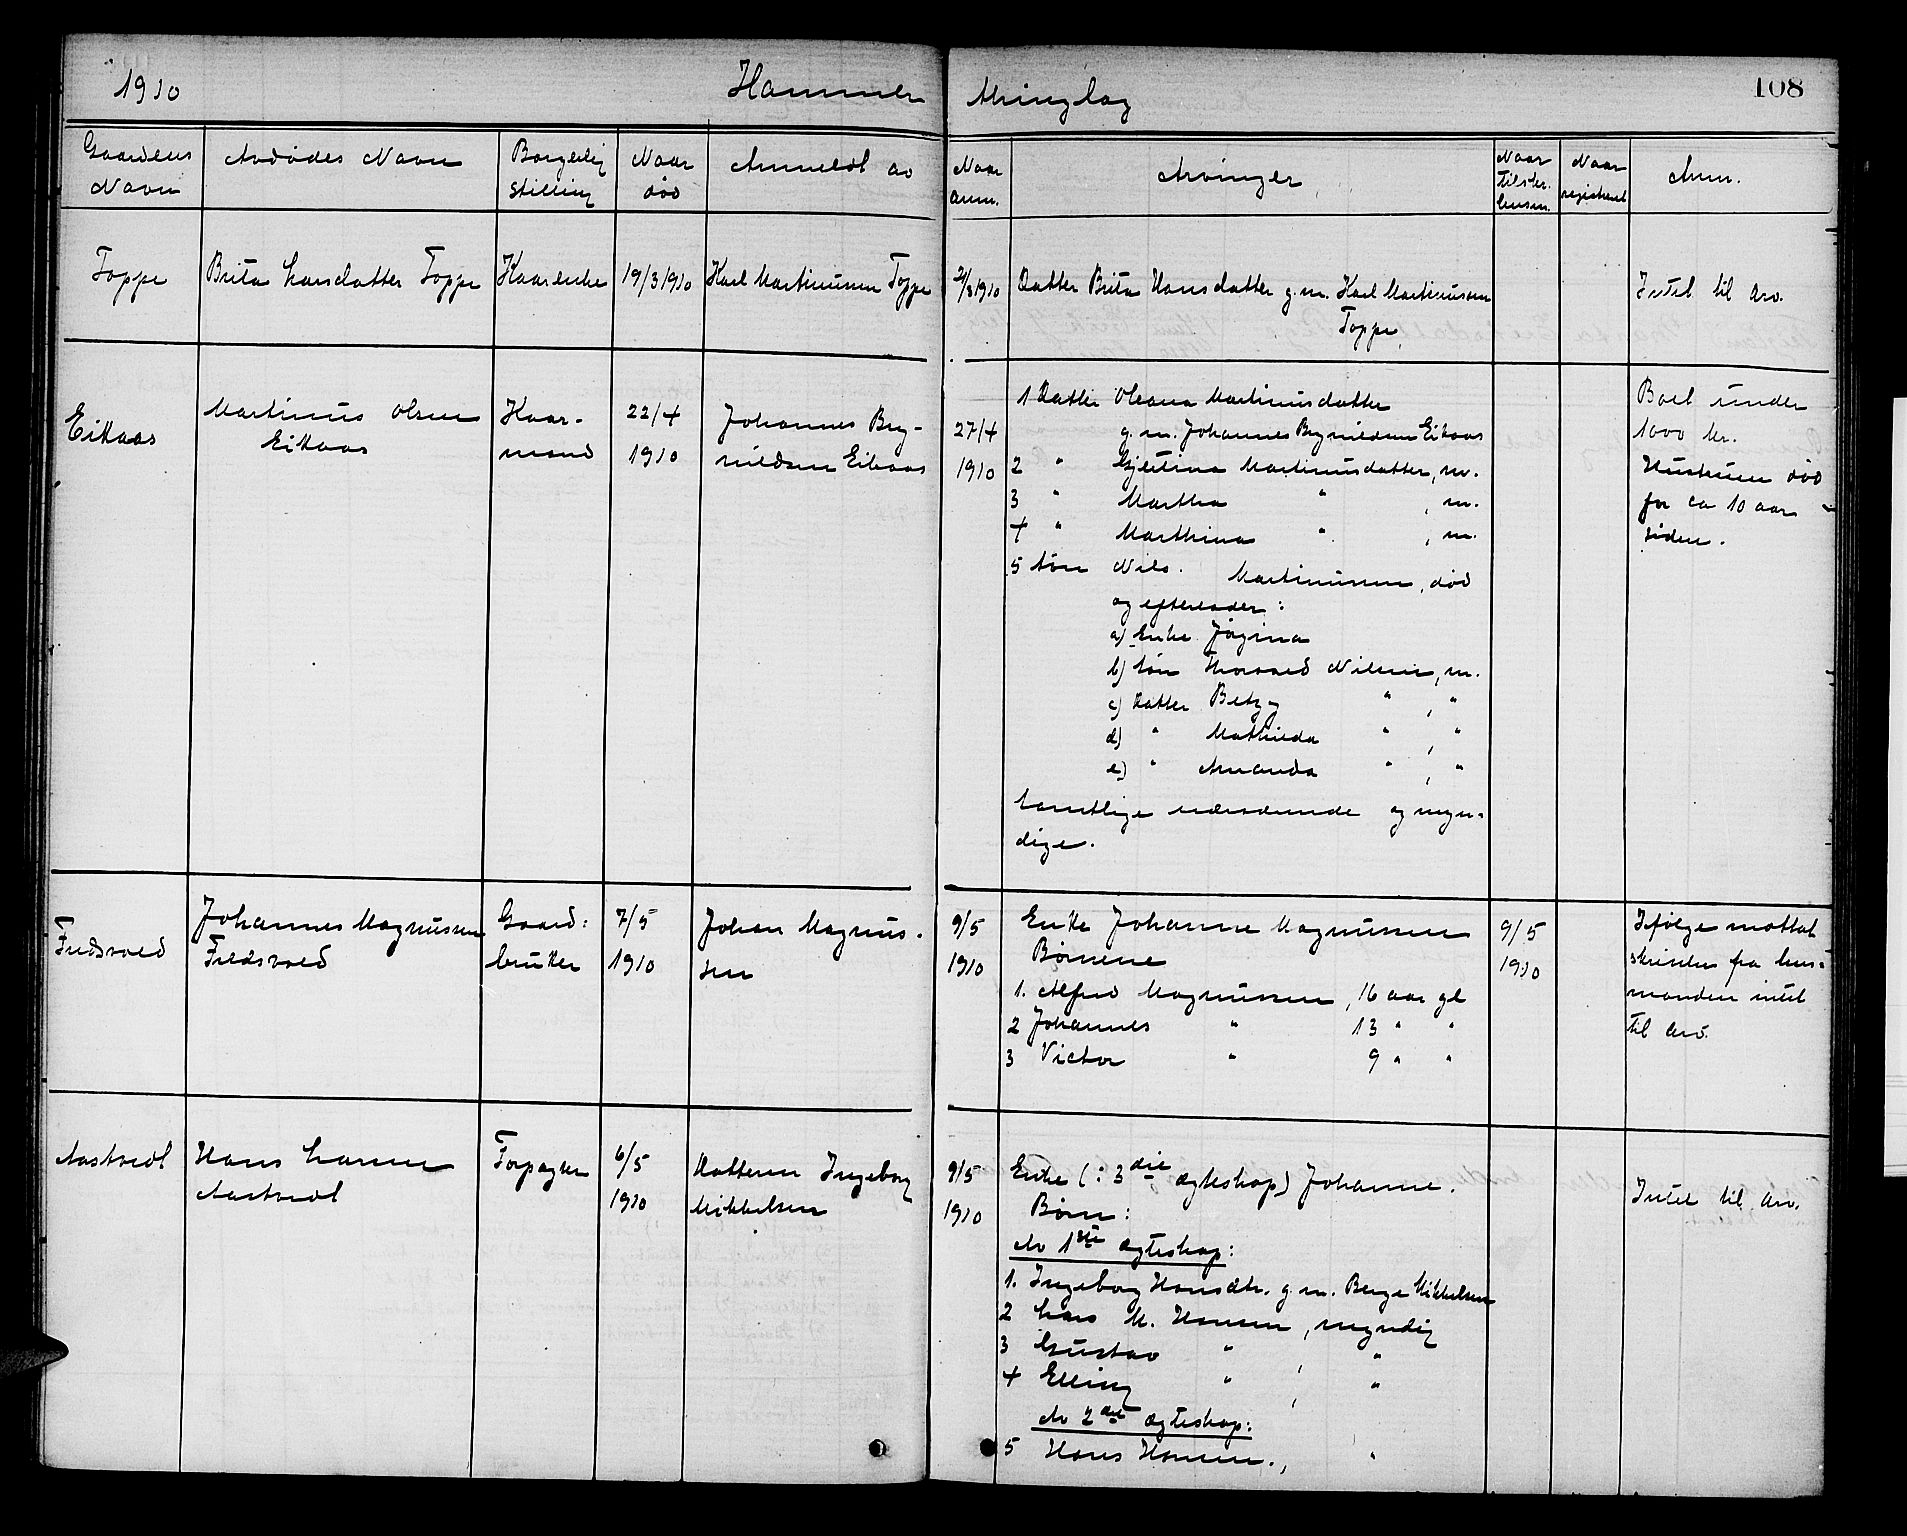 1910
Hammer
thinglag
108
Gaardens Navn
Avdødes Navn
Borgerlig stilling
Naar død
Anmeldt av
Naar anm.
Arvinger
Naar
registreret
Anm.
Toppe
Brita Larsdatter Toppe
Kaarenke
19/3 1910
Karl Martinussen Toppe
Datter Brita Hansdatter g.m. Karl Martinussen
Toppe
Intet til arv.
Eikaas
Martinus Olsen
Eikaas
Kaar-
mand
22/4
1910
Johannes Bry-
nildsen Eikaas
27/4
1910
1 Datter Oleana Martinusdatter
g.m. Johannes Brynildsen Eikaas
2 " Gjertina Martinusdatter, m.
3 " Martha " , m.
4 " Marthina " , m.
5 Søn Nils Martinussen, død
og efterlader:
a) Enke Jørgina
b) Søn Thorvald Nilsen, m.
c) Datter Betzy " , "
d) " Mathilda " , "
e) " Amanda " , "
Samtlige nærværende og myn-
dige.
Boet under
1000 kr.
Hustruen død
for ca 10 aar
siden.
Johannes Magnussen
Gaard:
bruker
7/5
1910
Johan Magnus-
sen
9/5
1910
Enke Johanne Magnussen
Børnene
1. Alfred Magnussen, 16 aar gl
2 Johannes " 13 " "
3 Victor " 9 " "
9/5
1910
Ifølge mottat
skrivelse fra lens-
manden intet
til arv.
Aastvedt
Hans Larsen
Aastvedt
Forpagter
6/5
1910
Datteren Ingeborg
Mikkelsen
9/5
1910
Enke (: 3die egteskap) Johanne.
Børn:
Av 1ste egteskap:
1. Ingeborg Hansdtr. g.m. Berge Mikkelsen
2 Lars M. Hansen, myndig
3 Gustav " , "
4 Elling " , "
Av 2det egteskap:
5 Hans Hansen , "
Intet til arv.